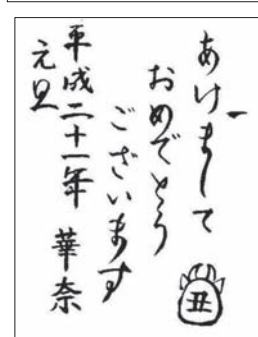 あけまして
おめでとう
ございます
平成二十一年 華奈
元旦
丑